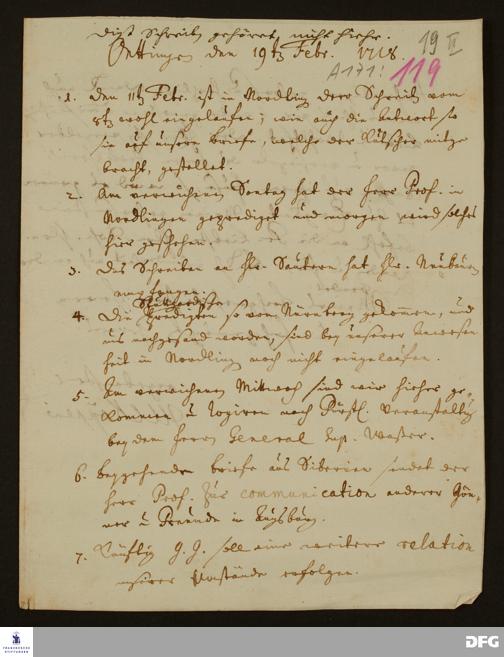 dißes Schreiben gehöret nicht hieher.
Oettingen den 19ten Febr. 1718.
19 II
A 171:
119
1. den 11ten Febr. ist in Nördling. dero Schreiben vom
8ten wohl eingelauffen; wie auch die Antwort so
sie auf unsere Briefe, welche der Kutscher mitge
bracht, gestellet.
2. Am verwichenen Sontag hat der Herr Prof. in
Nördlingen geprediget und morgen wird solches
hier geschehen.
3. Das Schreiben an Hr. Sautern hat Hr. Neubauer
empfangen.
Stuttgardische
4. Die Predigten so von Nürnberg gekommen, und
uns nachgesand worden, sind bey unserer Anwesen
heit in Nördling. noch nicht eingelauffen.
5. Am verwichenen Mittwoch sind wir hieher ge-
kommen u. logiren nach Fürstl. Veranstaltung
bey dem Herrn General Sup.
6. beygehende Briefe aus Siberien sendet der
Herr Prof. zur communication anderer Gön-
ner u. Freunde in Augsburg.
7. Künftig G. G. soll eine weitere relation
unserer Umstände erfolgen.
FRANCKESCHE
STIFTUNGEN
DFG